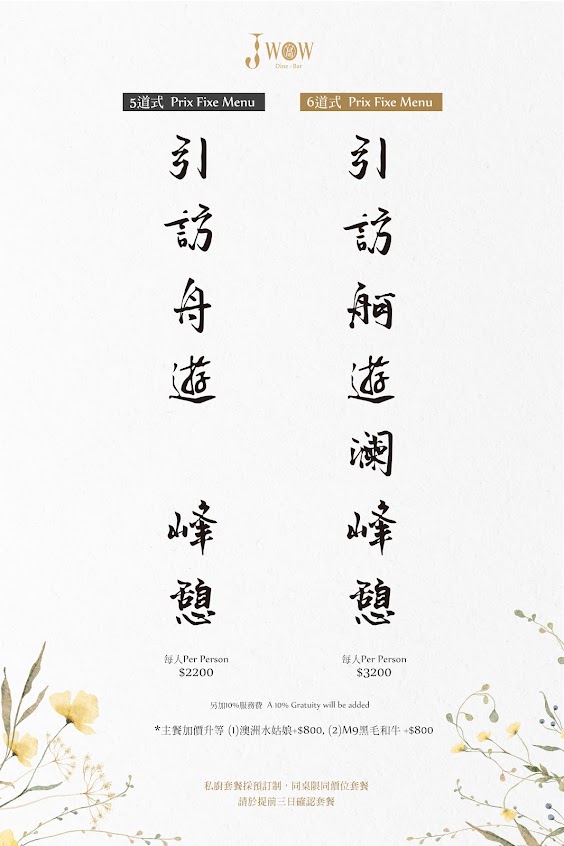 J WOW
Dine & Bar
5道式 Prix Fixe Menu
引
訪
舟
遊
峰
憩
每人Per Person
$2200
6道式 Prix Fixe Menu
引
訪
舸
遊
瀾
峰
憩
每人Per Person
$3200
另加10%服務費 A 10% Gratuity will be added
*主餐加價升等 (1)澳洲水姑娘+$800, (2)M9黑毛和牛 +$800
私廚套餐採預訂制，同桌限同價位套餐
請於提前三日確認套餐